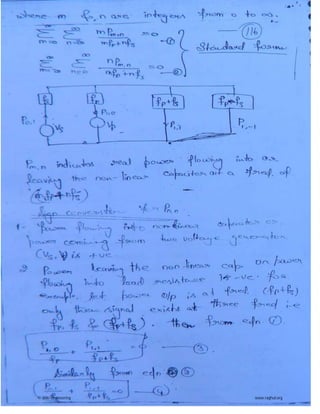 where m & n are integers from 0 to ∞.
∞ Σ m=0 ∞ Σ n=0 m Pm,n / mfp+nfs = 0 - ①
116
Standard forms
∞ Σ ∞ Σ n=0 n Pm,n / mfp+nfs = 0 - ②
fs fp fp+fs
P0,1 Vs P1,0 Vp P1,1 P1,-1
Pm,n indicates real power flowing into or
leaving the non-linear capacitor at a freq. of
(mfp+nfs)
Sign convention for Pm,n.
1. Power flowing into nonlinear capacitor or
power coming from two voltage generators
(Vs, Vp) is +ve
2. Power leaving the non linear cap or power
flowing into load resistance is -ve. for
example, let power o/p is at freq. (fp+fs)
only then signal exists at three freq i.e
fp, fs & (fp+fs). then from eqn ①.
P1,0 / fp + P1,1 / fp+fs = 0 - ③
Similarly from eqn ②
P0,1 / fs + P1,1 / fp+fs = 0 - ④
www.raghul.org